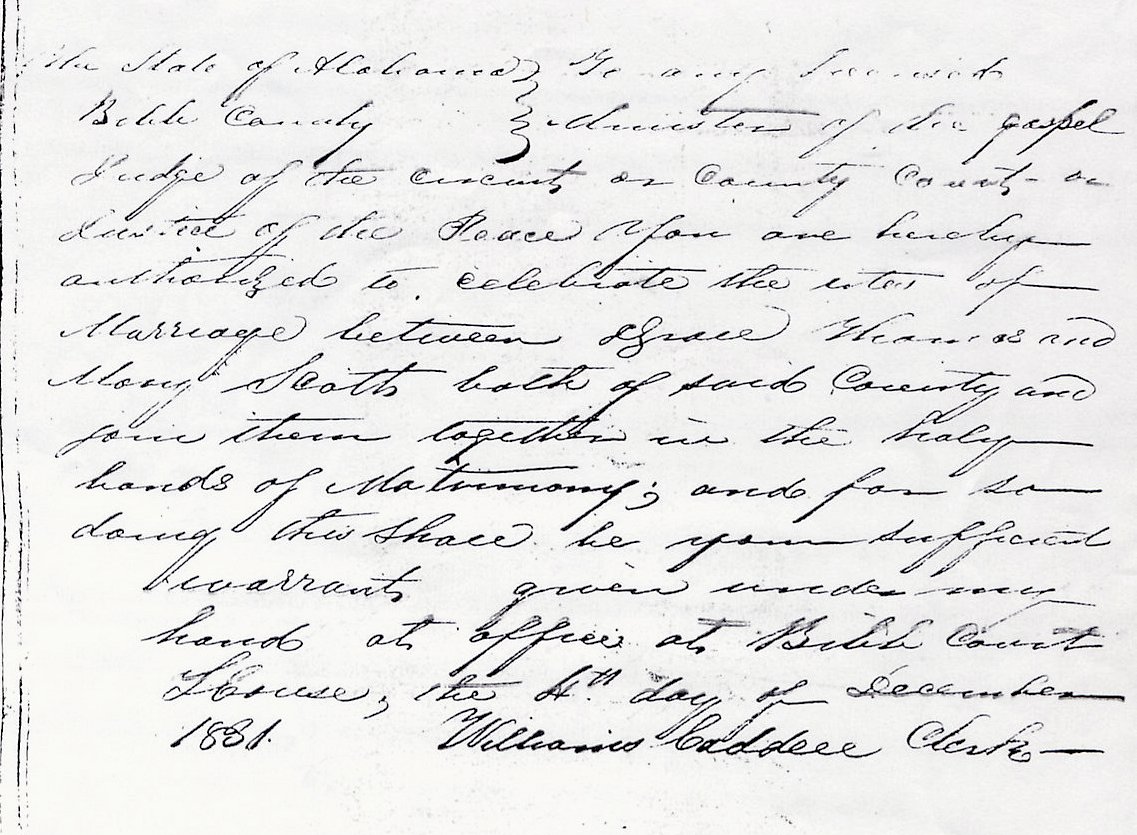 The State of Alabama } To any licensed
Bibb County } Minister of the gospel
Judge of the circuit or County Court or
Justice of the Peace You are hereby
authorized to celebrate the rites of
Marriage between Thomas and
Mary Scott both of said County and
join them together in the holy
bonds of Matrimony; and for so
doing this shall be your sufficient
warrant given under my
hand at office at Bibb Court
House, the 4th day of December
1831. William Caddell Clerk